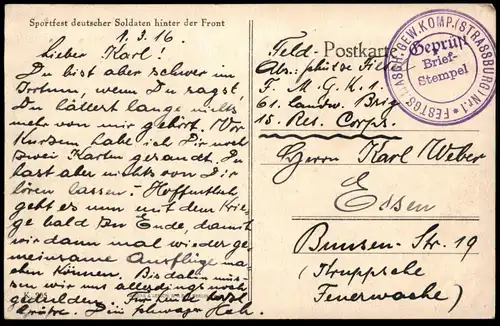 Sportfest deutscher Soldaten hinter der Front
1.3.16
Lieber Karl!
Du bist aber schwer im
Irrtum, wenn Du sagst,
Du hättest lange nichts
mehr von mir gehört. Vor
Kurzem habe ich Dir noch
zwei Karten gesandt. Du
hast aber nichts von Dir
hören lassen. Hoffentlich
geht es nun mit dem Krie-
ge bald zu Ende, damit
wir dann mal wieder ge-
meinsame Ausflüge ma-
chen können. Bis dahin müs-
sen wir uns allerdings noch
gedulden. herzl.
Grüße. Dein Schwager
Feld-Postkarte
Abs.
F. M. G. K. 1.
61. Landw. Brig
15. Res. Corps.
Geprüft
Brief-
Stempel
FESTGS. MASCH. GEW. KOMP. (STRASSBURG) Nr.
Herrn Karl Weber
Essen
Bunsen-Str. 19
(Kruppsche
Feuerwache)